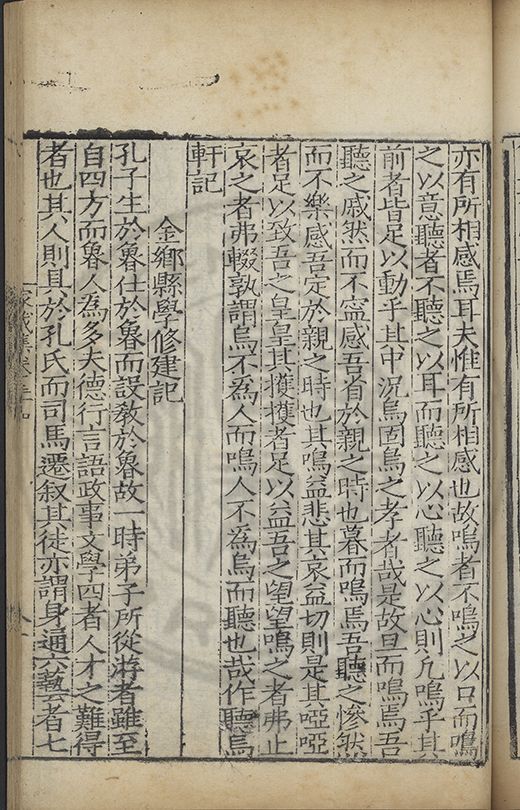 亦有所相感焉耳夫惟有所相感也故鳴者不鳴之以口而鳴
之以意聽者不聽之以耳而聽之以心聽之以心則凡鳴乎其
前者皆足以動乎其中況烏固鳥之孝者哉是故旦而鳴焉吾
聽之戚然而不寧感吾省於親之時也暮而鳴焉吾聽之慘然
而不樂感吾定於親之時也其鳴益悲其哀益切則是其啞啞
者足以致吾之皇皇其擭擭者足以益吾之望望鳴之者弗止
哀之者弗輟孰謂烏不為人而鳴人不為烏而聽也哉作聽烏
軒記
金鄉縣學修建記
孔子生於魯仕於魯而設教於魯故一時弟子所從游者雖至
自四方而魯人為多夫德行言語政事文學四者人才之難得
者也其人則具於孔氏而司馬遷叙其徒亦謂身通六藝者七